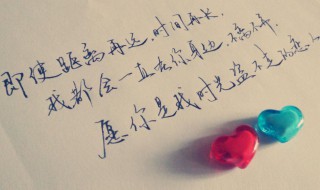 即使距离再远,时间再长,
我都会一直在你身边,不离不弃.
愿你是我时光盗不走的恋